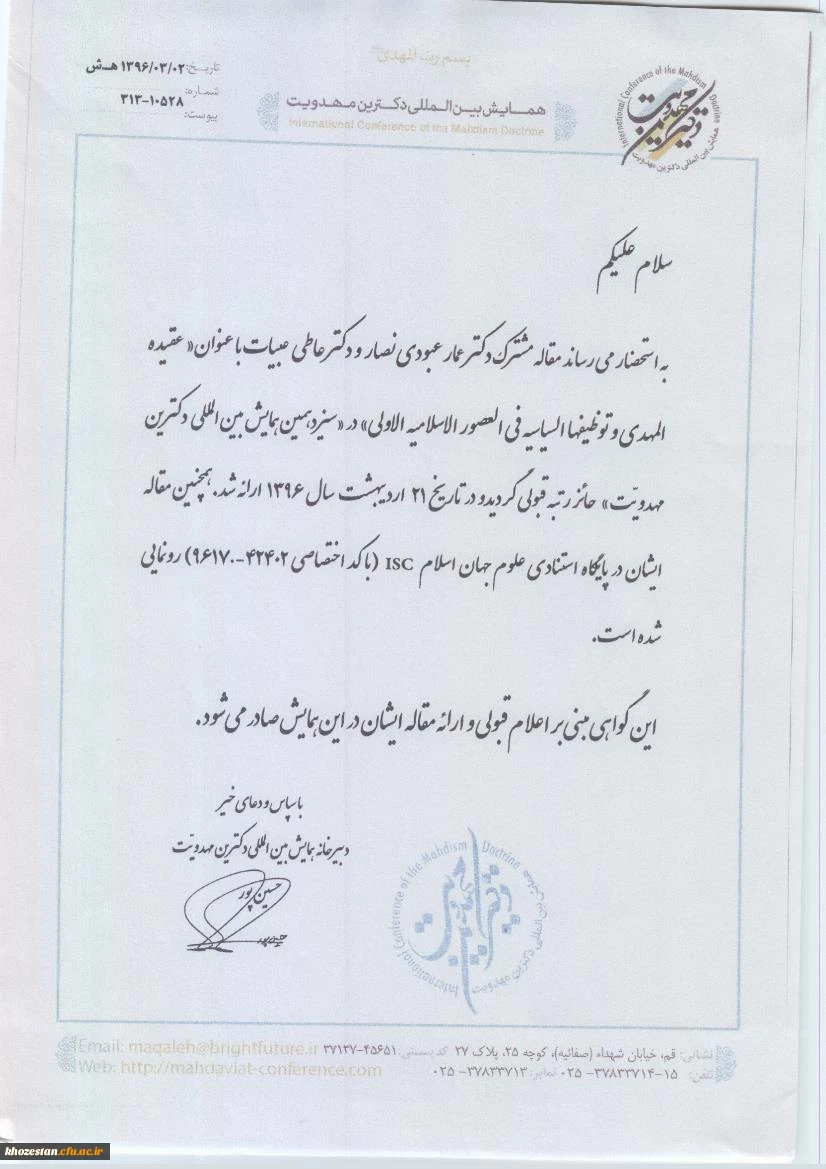 بسم رب المهدی
تاریخ: ۱۳۹۶/۰۳/۰۲ هـ.ش
شماره: ۳۱۳-۱۰۵۲۸
پیوست:
همایش بین‌المللی دکترین مهدویت
International Conference of the Mahdism Doctrine
International Conference of the Mahdism Doctrine
دکترین مهدویت
همایش بین المللی دکترین مهدویت
سلام علیکم
به استحضار می رساند مقاله مشترک دکتر عمار عبودی نصار و دکتر عاطی عبیات با عنوان «عقیده
المهدی و توظیفها السیاسیه فی العصور الاسلامیه الاولی» در «سیزدهمین همایش بین المللی دکترین
مهدویّت» حائز رتبه قبولی گردید و در تاریخ ۲۱ اردیبهشت سال ۱۳۹۶ ارائه شد. همچنین مقاله
ایشان در پایگاه استنادی علوم جهان اسلام ISC (با کد اختصاصی ۴۲۴۰۲-۹۶۱۷۰) رونمایی
شده است.
این گواهی مبنی بر اعلام قبولی و ارائه مقاله ایشان در این همایش صادر می شود.
با سپاس و دعای خیر
دبیرخانه همایش بین المللی دکترین مهدویّت
حسین پور
حسین پور
International Conference of the Mahdism Doctrine
دکترین مهدویت
همایش بین المللی دکترین مهدویت
نشانی: قم، خیابان شهداء (صفائیه)، کوچه ۲۵، پلاک ۲۷ کد پستی: ۴۵۶۵۱-۳۷۱۳۷
Email: maqaleh@brightfuture.ir
تلفن: ۱۵-۳۷۸۳۳۷۱۴-۰۲۵ نمابر: ۳۷۸۳۳۷۱۳-۰۲۵
Web: http://mahdaviat-conference.com
khozestan.cfu.ac.ir